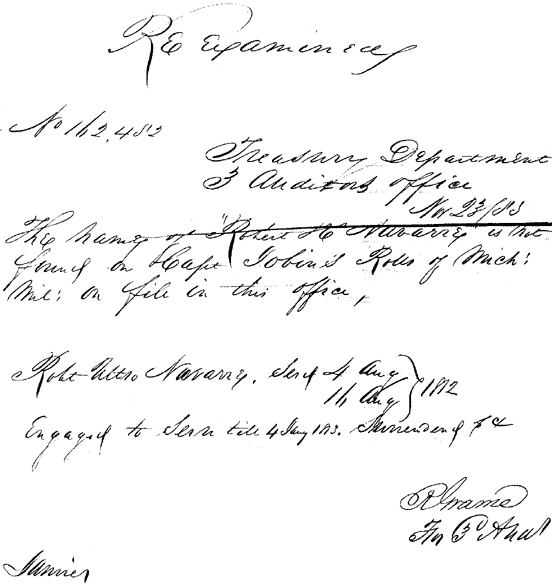 Re Examined
No 162,482
Treasury Department
3d Auditors Office
Nov 23/83
The name of "Robert H Navarre" is not
found on Capt Jobin's Rolls of Mich:
Mil: on file in this office,
Robt Navarre, Serd 4 Aug
16 Aug } 1812
Engaged to Serve till 4 Jany 1813. Surrendered
For 3d Aud